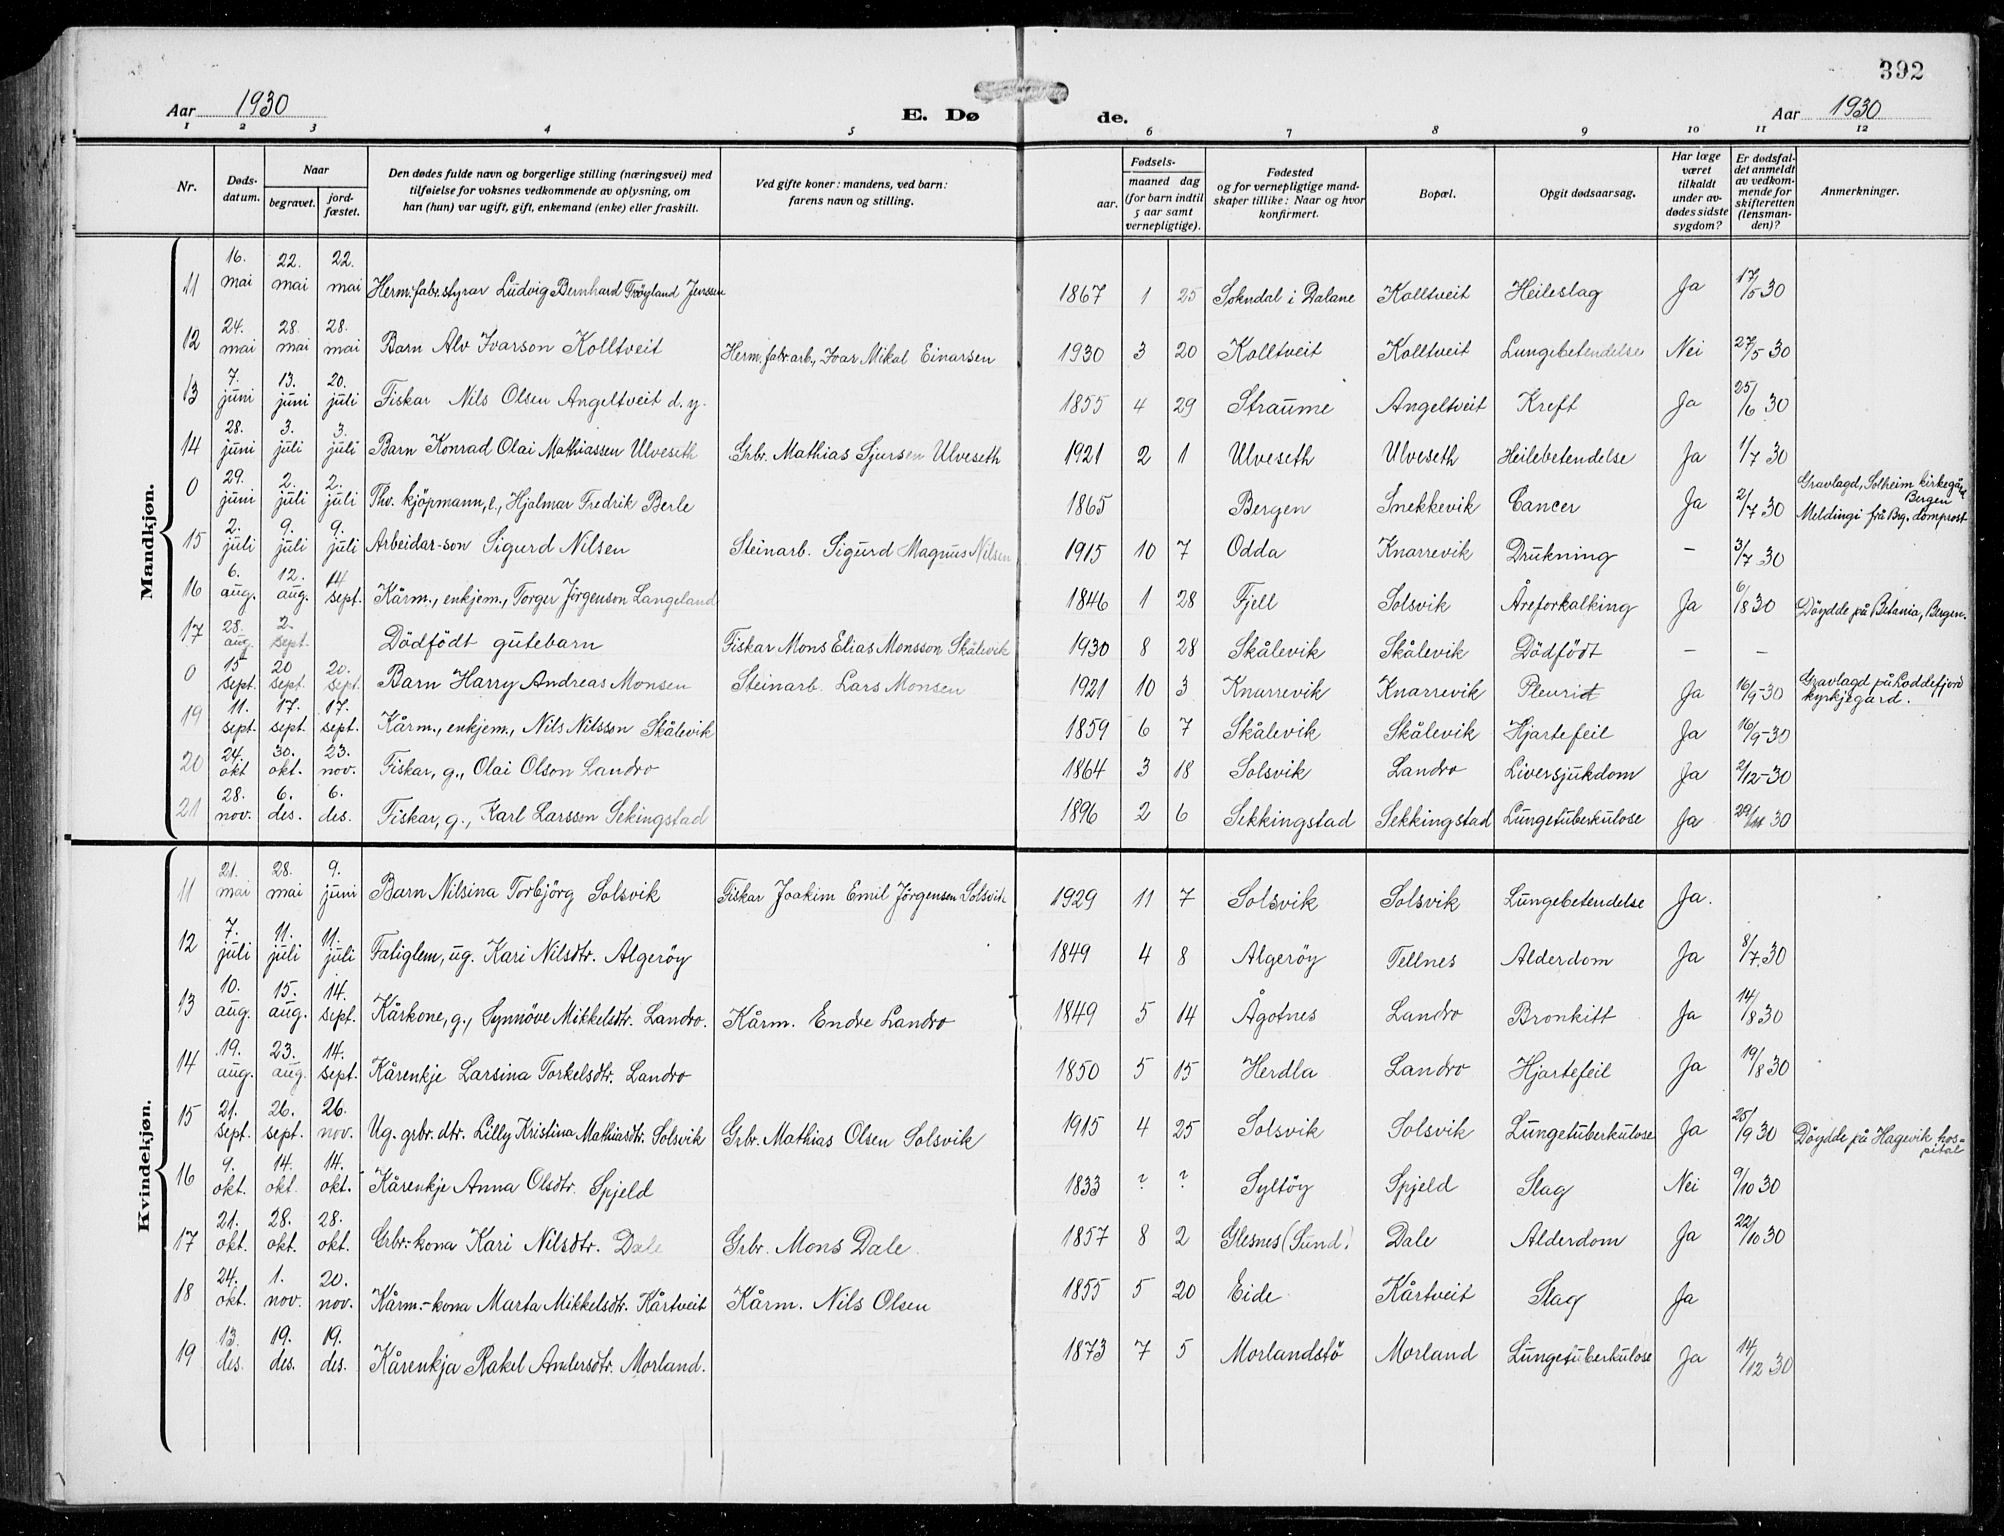 392
Aar 1930 E. Dø de. Aar 1930
1 2 3 4 5 6 7 8 9 10 11 12
Nr. Døds-datum. Naar begravet. jord-fæstet. Den dødes fulde navn og borgerlige stilling (næringsvei) med tilføielse for voksnes vedkommende av oplysning, om han (hun) var ugift, gift, enkemand (enke) eller fraskilt. Ved gifte koner: mandens, ved barn: farens navn og stilling. Fødsels- aar. maaned dag (for barn indtil 5 aar samt vernepligtige). Fødested og for vernepligtige mandskaper tillike: Naar og hvor konfirmert. Bopæl. Opgit dødsaarsag. Har læge været tilkaldt under avdødes sidste sygdom? Er dødsfaldet anmeldt av vedkommende for skifteretten (lensmanden)? Anmerkninger.
Mandkjøn.
11 16. mai 22. mai 22. mai Herm.fabr.styrar Ludvig Bernhard Trøyland Jenssen 1867 1 25 Sokndal i Dalane Kolltveit Heileslag Ja 17/5 30
12 24. mai 28. mai 28. mai Barn Alv Ivarson Kolltveit Herm.fabr.arb., Ivar Mikal Einarsen 1930 3 20 Kolltveit Kolltveit Lungebetendelse Nei 27/5 30
13 7. juni 13. juni 20. juli Fiskar Nils Olsen Angeltveit d.y. 1855 4 29 Straume Angeltveit Kreft Ja 25/6 30
14 28. juni 3. juli 3. juli Barn Konrad Olai Mathiassen Ulveseth Grbr. Mathias Sjursen Ulveseth 1921 2 1 Ulveseth Ulveseth Heilebetendelse Ja 1/7 30
0 29. juni 2. juli 2. juli Thv. kjöpmann, e, Hjalmar Fredrik Berle 1865 Bergen Snekkevik Cancer Ja 2/7 30 Gravlagd, Solheim kirkegård Bergen Meldingi frå Brg. domprost
15 2. juli 9. juli 9. juli Arbeidar-son Sigurd Nilsen Steinarb. Sigurd Magnus Nilsen 1915 10 7 Odda Knarrevik Drukning – 3/7 30
16 6. aug. 12. aug. 14 sept. Kårm., enkjem., Torger Jörgenson Langeland 1846 1 28 Fjell Solsvik Åreforkalking Ja 6/8 30 Döydde på Betania, Bergen.
17 28. aug. 2. sept. Dödfödt gutebarn Fiskar Mons Elias Monsson Skålevik 1930 8 28 Skålevik Skålevik Dödfödt – –
0 15 sept. 20 sept. 20. sept. Barn Harry Andreas Monsen Steinarb. Lars Monsen 1921 10 3 Knarrevik Knarrevik Pleurit Ja 16/9-30 Gravlagd på Loddefjord kyrkjegard.
19 11. sept. 17. sept. 17. sept. Kårm., enkjem., Nils Nilsson Skålevik 1859 6 7 Skålevik Skålevik Hjartefeil Ja 16/9-30
20 24. okt 30. okt. 23. nov. Fiskar, g., Olai Olson Landro 1864 3 18 Solsvik Landro Liversjukdom Ja 2/12-30
21 28. nov. 6. des. 6. des. Fiskar, g., Karl Larsson Sekingstad 1896 2 6 Sekkingstad Sekkingstad Lungetuberkulose Ja 29/11 30
Kvindekjøn.
11 21. mai 28. mai 9. juni Barn Nilsina Torbjörg Solsvik Fiskar Joakim Emil Jörgensen Solsvik 1929 11 7 Solsvik Solsvik Lungebetendelse Ja.
12 7. juli 11. juli 11. juli Fatiglem, ug. Kari Nilsdtr. Algeröy 1849 4 8 Algeröy Tellnes Alderdom Ja 8/7.30
13 10. aug. 15. aug. 14. sept. Kårkone, g., Synnöve Mikkelsdtr. Landro. Kårm. Endre Landro 1849 5 14 Ågotnes Landro Bronkitt Ja 14/8 30
14 19. aug. 23. aug. 14. sept. Kårenkje Larsina Torkelsdtr. Landro 1850 5 15 Herdla Landro Hjartefeil Ja 19/8 30
15 21. sept. 26. sept. 26. nov. Ug. grbr. dtr. Lilly Kristina Mathiasdtr. Solsvik Grbr. Mathias Olsen Solsvik 1915 4 25 Solsvik Solsvik Lungetuberkulose Ja 25/9 30 Döydde på Hagevik hospital
16 9. okt. 14. okt. 14. okt. Kårenkje Anna Olsdtr. Spjeld 1833 ? ? Syltöy Spjeld Slag Nei 9/10 30
17 21. okt. 28. okt. 28. okt. Grbr.-kona Kari Nilsdtr. Dale Grbr. Mons Dale. 1857 8 2 Glesnes (Sund). Dale Alderdom Ja 22/10 30
18 24. okt. 1. nov. 20. nov. Kårm.-kona Marta Mikkelsdtr. Kårtveit Kårm. Nils Olsen 1855 5 20 Eide Kårtveit Slag Ja
19 13. des. 19. des. 19. des. Kårenkja Rakel Andersdtr. Morland. 1873 7 5 Morlandstö Morland Lungetuberkulose Ja 14/12 30